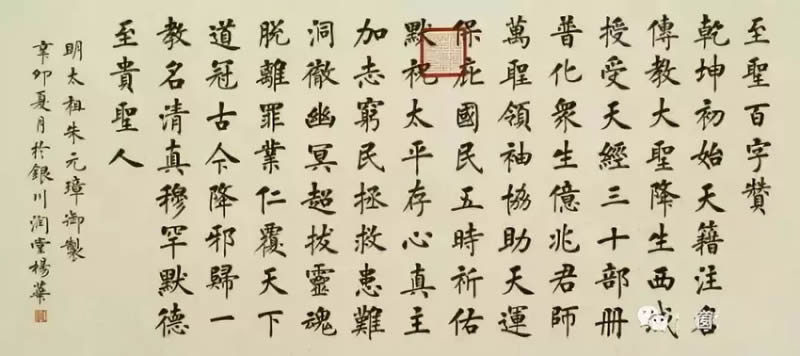 至聖百字贊
乾坤初始天籍注名
傳教大聖降生西域
授受天經三十部冊
普化衆生億兆君師
萬聖領袖協助天運
保庇國民五時祈佑
默祝太平存心真主
加志窮民拯救患難
洞徹幽冥超拔靈魂
脫離罪業仁覆天下
道冠古今降邪歸一
教名清真穆罕默德
至貴聖人
明太祖朱元璋御製
辛卯夏月於銀川潤堂楊華